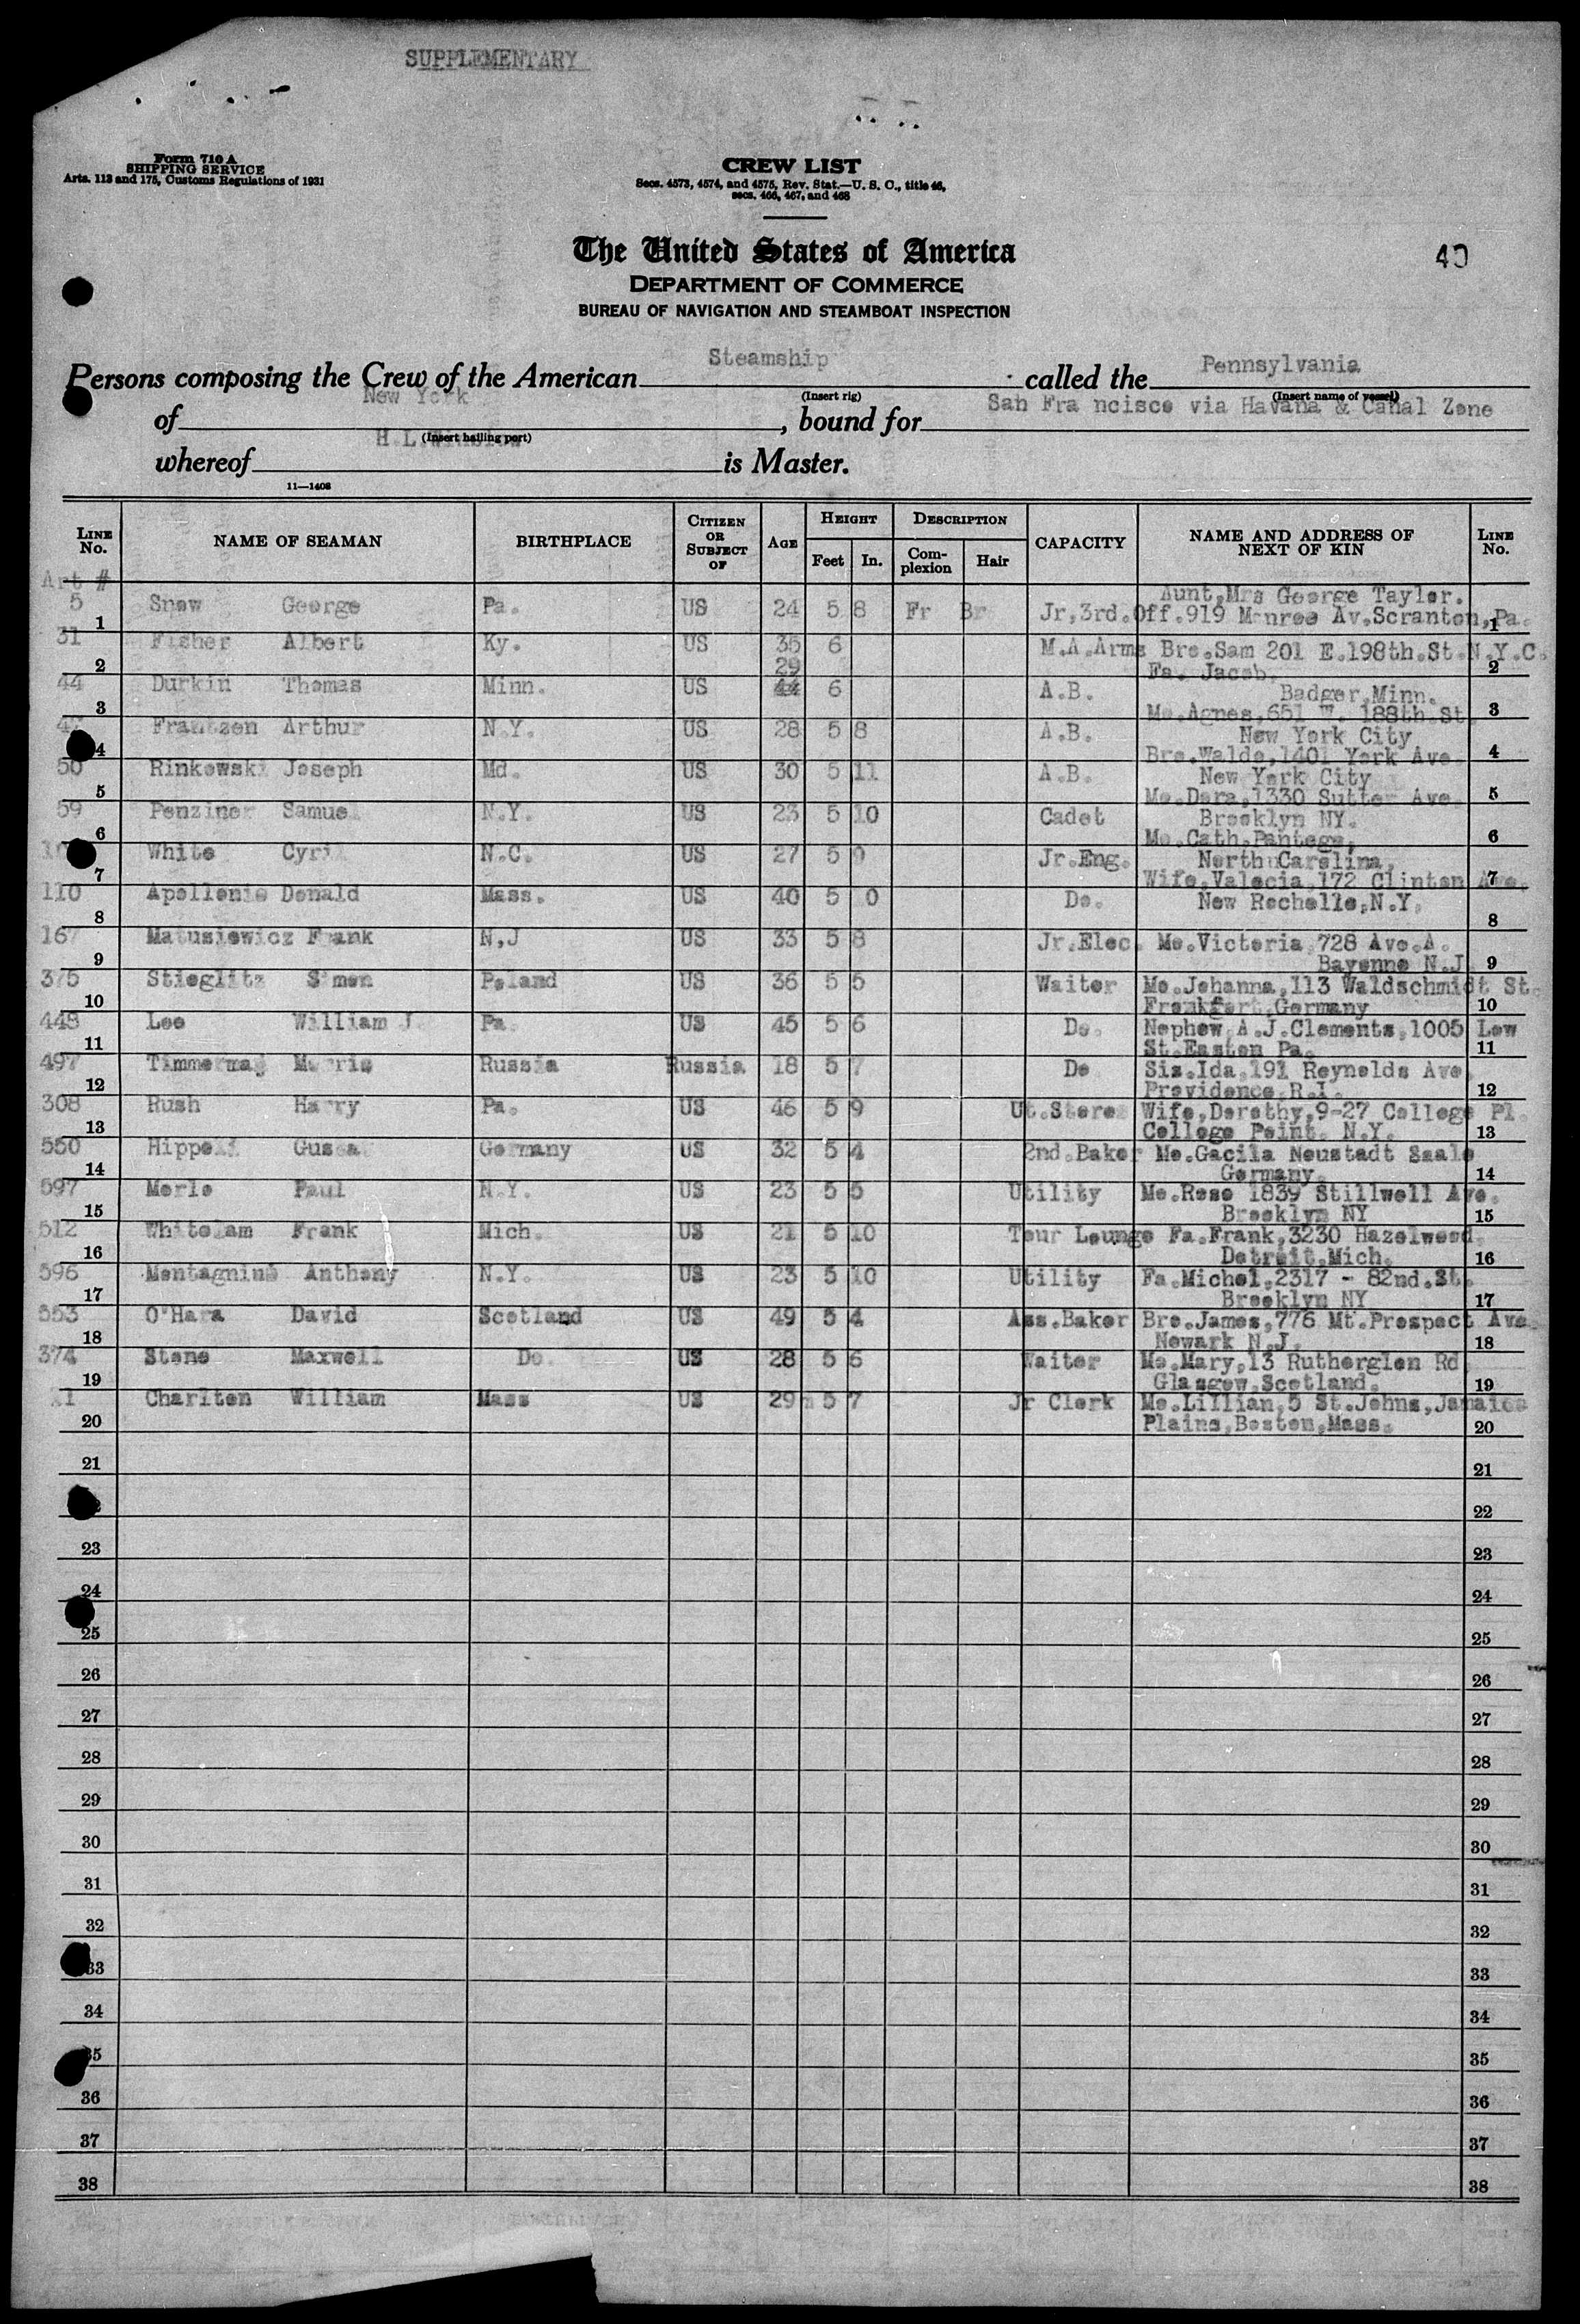 SUPPLEMENTARY
Form 710 A
SHIPPING SERVICE
Arts. 113 and 175, Customs Regulations of 1931
CREW LIST
Secs. 4573, 4574, and 4575, Rev. Stat.—U. S. C., title 46,
secs. 466, 467, and 468
The United States of America
40
DEPARTMENT OF COMMERCE
BUREAU OF NAVIGATION AND STEAMBOAT INSPECTION
Persons composing the Crew of the American Steamship called the Pennsylvania
(Insert rig) (Insert name of vessel)
of New York, bound for San Fra ncisco via Havana & Canal Zone
(Insert hailing port)
whereof H.L. is Master.
11—1408
LINE No. NAME OF SEAMAN BIRTHPLACE CITIZEN OR SUBJECT OF AGE HEIGHT Feet In. DESCRIPTION Complexion Hair CAPACITY NAME AND ADDRESS OF NEXT OF KIN LINE No.
Art #
Aunt,Mrs George Taylor.
5 1 Snow George Pa. US 24 5 8 Fr Br Jr,3rd.Off. 919 Monroe Av.Scranton,Pa. 1
31 2 Fisher Albert Ky. US 36 6 M.A.Arms Bro.Sam 201 E.198th.St.N.Y.C. 2
29 Fa. Jacob,
44 3 Durkin Thomas Minn. US 44 6 A.B. Badger,Minn. 3
Mo.Agnes,651 W. 188th.St
4 Frantzen Arthur N.Y. US 28 5 8 A.B. New York City 4
Bro.Waldo,1401 York Ave.
50 5 Rinkowski Joseph Md. US 30 5 11 A.B. New York City 5
Mo.Dora,1330 Sutter Ave.
59 6 Penziner Samuel N.Y. US 23 5 10 Cadet Brooklyn NY. 6
Mo.Cath.Pantego,
7 White Cyril N.C. US 27 5 9 Jr.Eng. North Carolina, 7
Wife,Valecia,172 Clinton Ave.
110 8 Apollonio Donald Mass. US 40 5 0 Do. New Rochelle,N.Y. 8
167 9 Matusiewicz Frank N,J US 33 5 8 Jr.Elec. Mo.Victoria 728 Ave.A. 9
Bayonne N.J
375 10 Stieglitz Simon Poland US 36 5 5 Waiter Mo.Johanna,113 Waldschmidt St. 10
Frankfort,Germany
448 11 Lee William J Pa. US 45 5 6 Do. Nephew A.J.Clements,1005 Low 11
St.Easton Pa.
497 12 Timmerman Morris Russia Russia 18 5 7 Do Sis.Ida,191 Reynolds Ave. 12
Providence,R.I.
308 13 Rush Harry Pa. US 46 5 9 Ut.Stores Wife,Dorothy,9-27 College Pl. 13
College Point. N.Y.
550 14 Germany US 32 5 4 2nd.Baker Mo.Gacila Neustadt Saale 14
Germany.
597 15 Merle Paul N.Y. US 23 5 5 Utility Mo.Rose 1839 Stillwell Ave. 15
Brooklyn NY
512 16 Whitelam Frank Mich. US 21 5 10 Tour Lounge Fa.Frank,3230 Hazelwood. 16
Detroit,Mich.
596 17 Montagnino Anthony N.Y. US 23 5 10 Utility Fa.Michel,2317 - 82nd.St. 17
Brooklyn NY
553 18 O'Hara David Scotland US 49 5 4 Ass.Baker Bro.James,776 Mt.Prospect Ave. 18
Newark N.J.
374 19 Stone Maxwell Do. US 28 5 6 Waiter Mo.Mary,13 Rutherglen Rd 19
Glasgow,Scotland.
20 Charlton William Mass US 29 5 7 Jr Clerk Mo.Lillian,5 St.Johns,Jamaica 20
Plains,Boston,Mass.
21 21
22
23 23
24 24
25 25
26 26
27 27
28 28
29 29
30 30
31 31
32 32
33 33
34 34
35 35
36 36
37 37
38 38